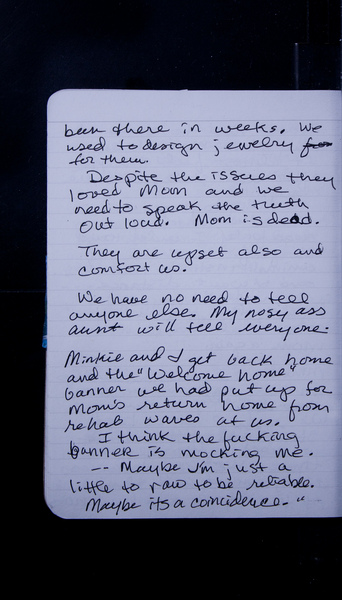 been there in weeks. We
used to design jewelry
for them.
Despite the issues they
loved Mom and we
need to speak the truth
out loud. Mom is dead.
They are upset also and
comfort us.
We have no need to tell
anyone else. My nosy ass
aunt will tell everyone.
Minkie and I get back home
and the "Welcome home"
banner we had put up for
Mom's return home from
rehab waves at us.
I think the fucking
banner is mocking me.
-- Maybe I'm just a
little to raw to be reliable.
Maybe its a coincidence. "